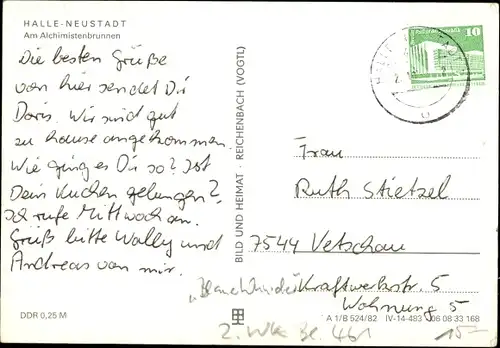 HALLE-NEUSTADT
Am Alchimistenbrunnen
Die besten Grüße
von hier sendet Dir
Doris. Wir sind gut
zu hause angekommen.
Wie ging es Dir so? Ist
Dein Kuchen gelungen?
Ich rufe Mittwoch an.
Grüß bitte Wally und
Andreas von mir.
DDR 0,25 M
BILD UND HEIMAT · REICHENBACH (VOGTL)
10
Frau
Ruth Stietzel
7544 Vetschau
Kraftwerkstr. 5
Wohnung 5
A 1/B 524/82 IV-14-483 06 08 33 168
15-